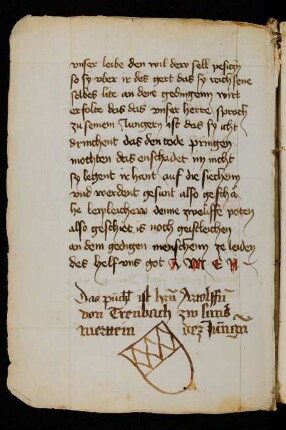 vnser leibe den wil der sell pesiczn
so sy vber ir des gert das sy
selbes lite an dem gedingenn wirt
erfolte das das vnser herre sprach
zu seinen Jungern ist das sy icht
drinchent das den tode pringen
mochten das enschadet im nicht
sy legent ir hant auf die siechenn
vnd werdent gesunt also gescha
he leypleichenn denne zweliffe poten
also geschiet is noch geistleichen
an dem gedigen menschenn ze leiden
des helf vns got A M E N
Das puch ist hern
von Trenbach zw sand
dez Jungn